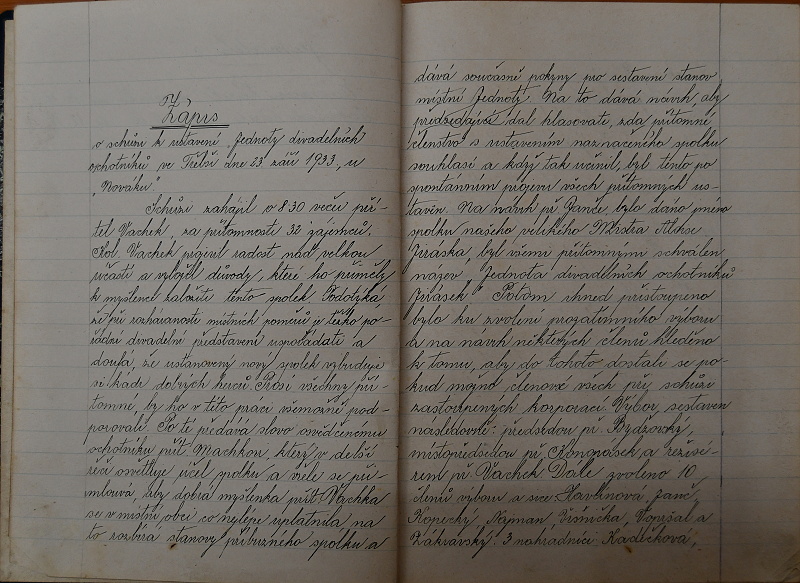 Zápis
o schůzi k ustavení "Jednoty divadelních
ochotníků ve Třebši dne 23 září 1933, u
"Nováků"
Schůzi zahájil o 8 30 večer pří-
tel Vachek, za přítomnosti 32 zájemců.
Kol. Vachek projevil radost nad velkou
účastí a vylíčil důvody, které ho přiměly
k myšlence založiti tento spolek. Podotýká
že při rozháranosti místních poměrů je těžko po-
řádné divadelní představení uspořádati a
doufá, že ustanovený nový spolek vybuduje
si kádr dobrých herců. Prosí všechny pří-
tomné, by ho v této práci všemožně pod-
porovali. Po té předává slovo osvědčenému
ochotníku přít. Machkovi, který v delší
řeči osvětluje účel spolku a vřele se při-
mlouvá, aby dobrá myšlenka přít. Vachka
se v místní obci co nejlépe uplatnila, na
to rozbírá stanovy příbuzného spolku a
dává současně pokyny pro sestavení stanov
místní Jednoty. Na to dává návrh, aby
předsedající dal hlasovati, zda přítomné
členstvo s ustavením naznačeného spolku
souhlasí a když tak učinil, byl tento po
spontánním projevu všech přítomných us-
taven. Na návrh př. Janče, bylo dáno jméno
spolku našeho velikého Mistra Aloise
Jiráska, byl všemi přítomnými schválen
název "Jednota divadelních ochotníků
Jirásek". Potom ihned přistoupeno
bylo ku zvolení prozatímního výboru
a na návrh některých členů hleděno
k tomu, aby do tohoto dostali se po-
kud možno členové všech při schůzi
zastoupených korporací. Výbor sestaven
následovně: předsedou př. Bydžovský,
místopředsedou př. a režisé-
rem př. Vachek. Dále zvoleno 10
členů výboru a sice Havránova, Janč,
Kopecký, Najman, Višnička, Vopršal a
Zákravský. 3 náhradníci: Kadečková,